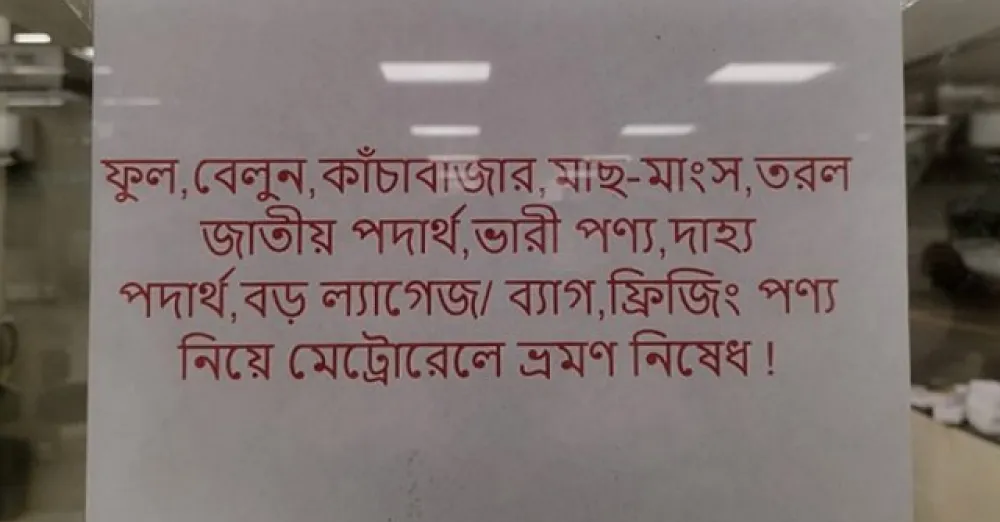 ফুল,বেলুন,কাঁচাবাজার,মাছ-মাংস,তরল
জাতীয় পদার্থ,ভারী পণ্য,দাহ্য
পদার্থ,বড় ল্যাগেজ/ ব্যাগ,ফ্রিজিং পণ্য
নিয়ে মেট্রোরেলে ভ্রমণ নিষেধ !